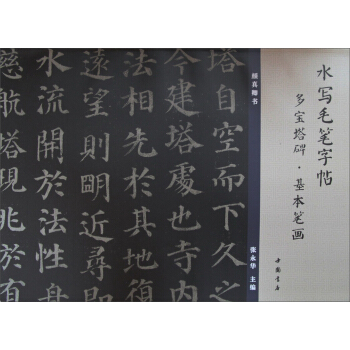 水写毛笔字帖
多宝塔碑·基本笔画
中国书店
颜真卿书
张永华 主编
塔自空而下久之
今建塔處也寺内
法相先於其地
遠望則明近尋即
水流開於法性
慈航塔現兆於有